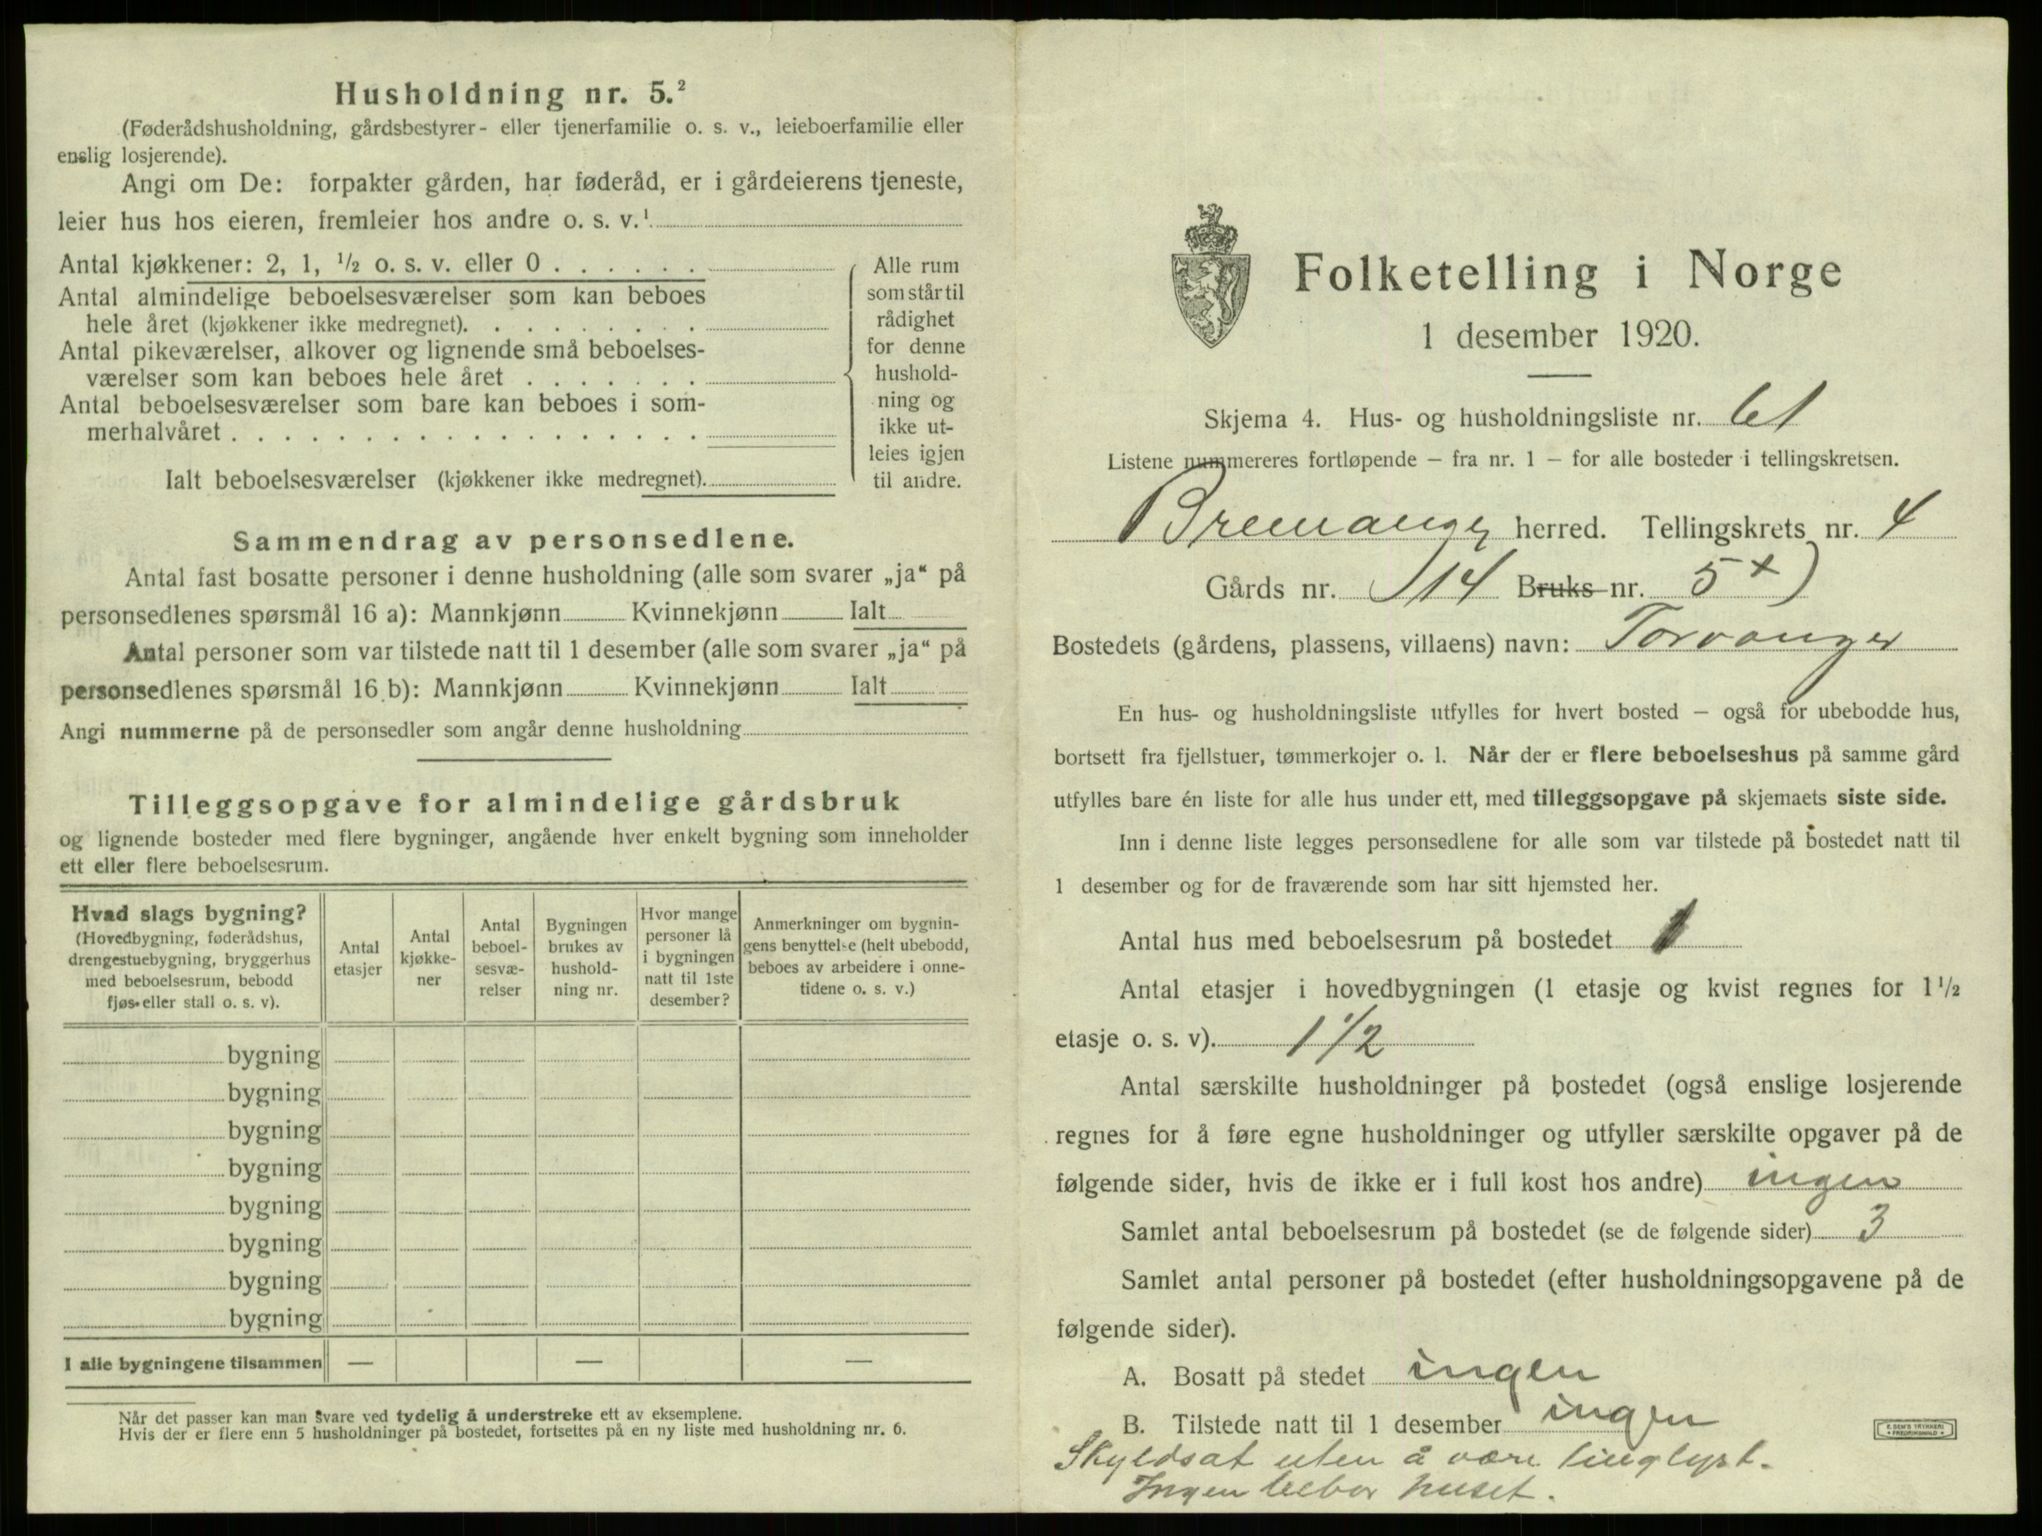 Husholdning nr. 5.²
(Føderådshusholdning, gårdsbestyrer- eller tjenerfamilie o. s. v., leieboerfamilie eller
enslig losjerende).
Angi om De: forpakter gården, har føderåd, er i gårdeierens tjeneste,
leier hus hos eieren, fremleier hos andre o. s. v.¹
Antal kjøkkener: 2, 1, ½ o. s. v. eller 0 . . . . . .
Antal almindelige beboelsesværelser som kan beboes
hele året (kjøkkener ikke medregnet). . . . . . . . .
Antal pikeværelser, alkover og lignende små beboelses-
værelser som kan beboes hele året . . . . . . .
Antal beboelsesværelser som bare kan beboes i som-
merhalvåret . . . . . . . . . . . . . . . . . .
Ialt beboelsesværelser (kjøkkener ikke medregnet).
Alle rum
som står til
rådighet
for denne
hushold-
ning og
ikke ut-
leies igjen
til andre.
Sammendrag av personsedlene.
Antal fast bosatte personer i denne husholdning (alle som svarer „ja“ på
personsedlenes spørsmål 16 a): Mannkjønn Kvinnekjønn Ialt
Antal personer som var tilstede natt til 1 desember (alle som svarer „ja“ på
personsedlenes spørsmål 16 b): Mannkjønn Kvinnekjønn Ialt
Angi nummerne på de personsedler som angår denne husholdning
Tilleggsopgave for almindelige gårdsbruk
og lignende bosteder med flere bygninger, angående hver enkelt bygning som inneholder
ett eller flere beboelsesrum.
Hvad slags bygning?
(Hovedbygning, føderådshus,
drengestuebygning, bryggerhus
med beboelsesrum, bebodd
fjøs eller stall o. s. v).
Antal
etasjer
Antal
kjøkke-
ner
Antal
beboel-
sesvæ-
relser
Bygningen
brukes av
hushold-
ning nr.
Hvor mange
personer lå
i bygningen
natt til 1ste
desember?
Anmerkninger om bygnin-
gens benyttelse (helt ubebodd,
beboes av arbeidere i onne-
tidene o. s. v.)
bygning
bygning
bygning
bygning
bygning
bygning
bygning
bygning
I alle bygningene tilsammen — — —
Når det passer kan man svare ved tydelig å understreke ett av eksemplene.
Hvis der er flere enn 5 husholdninger på bostedet, fortsettes på en ny liste med husholdning nr. 6.
Folketelling i Norge
1 desember 1920.
Skjema 4. Hus- og husholdningsliste nr. 61
Listene nummereres fortløpende – fra nr. 1 – for alle bosteder i tellingskretsen.
Bremanger herred. Tellingskrets nr. 4
Gårds nr. 114 Bruks nr. 5 x)
Bostedets (gårdens, plassens, villaens) navn: Torvanger
En hus- og husholdningsliste utfylles for hvert bosted – også for ubebodde hus,
bortsett fra fjellstuer, tømmerkojer o. l. Når der er flere beboelseshus på samme gård
utfylles bare én liste for alle hus under ett, med tilleggsopgave på skjemaets siste side.
Inn i denne liste legges personsedlene for alle som var tilstede på bostedet natt til
1 desember og for de fraværende som har sitt hjemsted her.
Antal hus med beboelsesrum på bostedet 1
Antal etasjer i hovedbygningen (1 etasje og kvist regnes for 1½
etasje o. s. v). 1½
Antal særskilte husholdninger på bostedet (også enslige losjerende
regnes for å føre egne husholdninger og utfyller særskilte opgaver på de
følgende sider, hvis de ikke er i full kost hos andre) ingen
Samlet antal beboelsesrum på bostedet (se de følgende sider) 3
Samlet antal personer på bostedet (efter husholdningsopgavene på de
følgende sider).
A. Bosatt på stedet ingen
B. Tilstede natt til 1 desember ingen
Skyldsat uten å være tinglyst.
Ingen bebor huset.